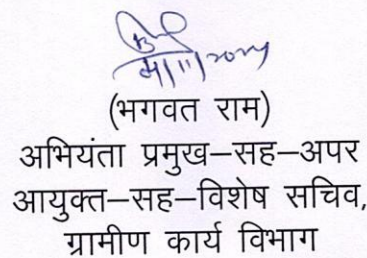 (भगवत राम)
अभियंता प्रमुख–सह–अपर
आयुक्त–सह–विशेष सचिव,
ग्रामीण कार्य विभाग